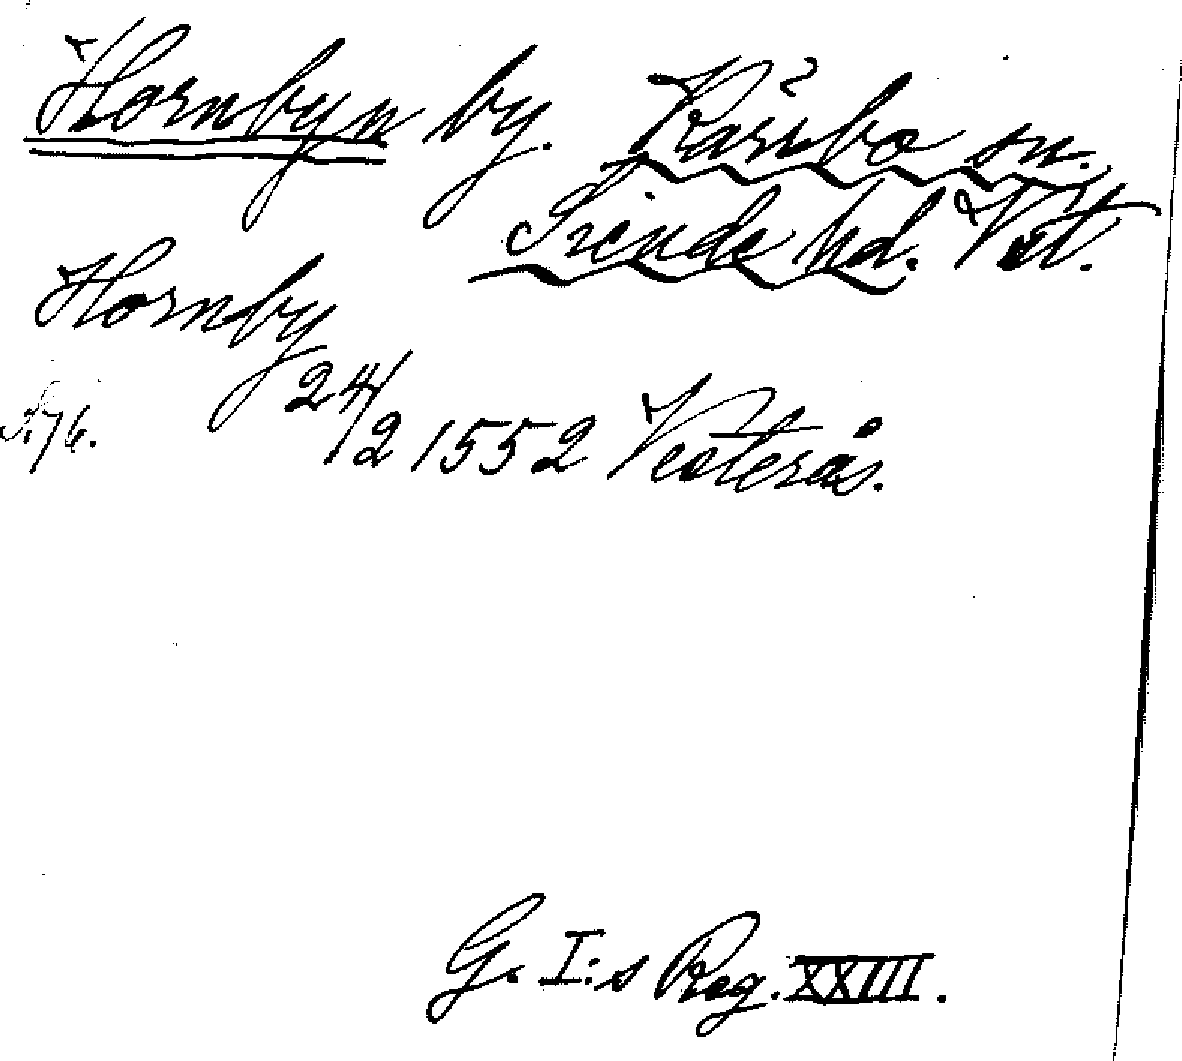 Hornbyn by. Kärrbo sn.
Siende hd. Vst.
Hornby
24/2 1552 Vesterås.
S. 76.
G. I:s Reg. XXIII.